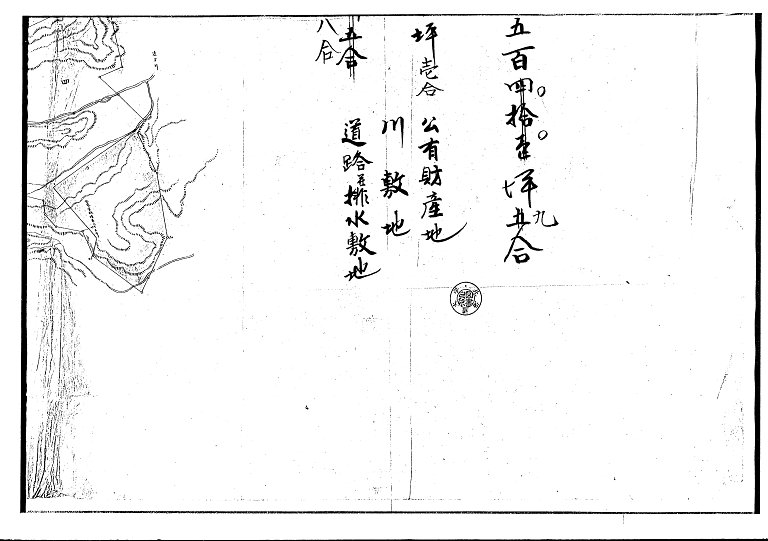 五百四拾壱坪五合
九
坪壱合 公有財産地
川敷地
五合 道路並排水敷地
八合